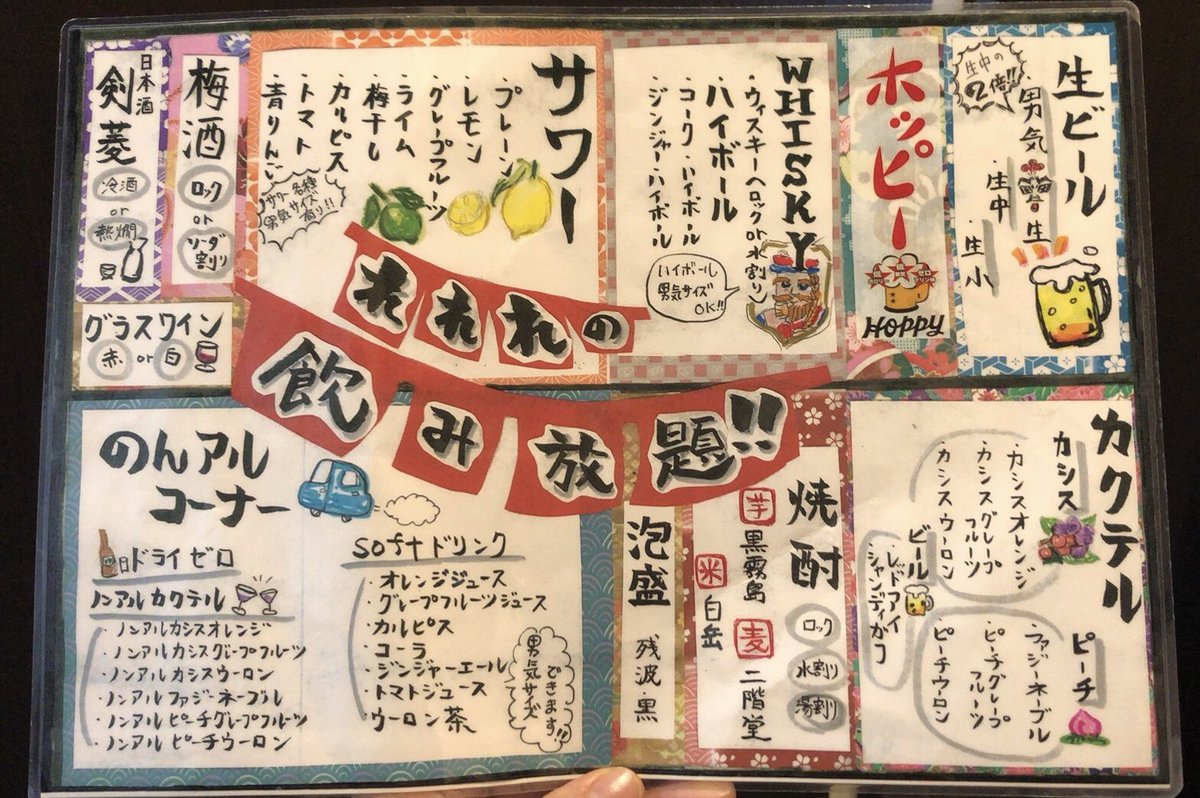 生ビール
生中の
2倍!!
男気生
・生中
・生小
ホッピー
HOPPY
WHISKY
・ウィスキー(ロック or 水割り)
ハイボール
・コークハイボール
・ジンジャーハイボール
ハイボール
男気サイズ
OK!!
サワー
・プレーン
・レモン
・グレープフルーツ
・ライム
・梅干し
・カルピス
・トマト
・青りんご
サワー各種
男気サイズ
有り!!
梅酒
ロック
or
ソーダ
割り
日本酒
剣菱
冷酒
or
熱燗
グラスワイン
赤 or 白
それれの
飲み放題!!
のんアル
コーナー
ドライゼロ
ノンアルカクテル
・ノンアルカシスオレンジ
・ノンアルカシスグレープフルーツ
・ノンアルカシスウーロン
・ノンアルファジーネーブル
・ノンアルピーチグレープフルーツ
・ノンアルピーチウーロン
softドリンク
・オレンジジュース
・グレープフルーツジュース
・カルピス
・コーラ
・ジンジャーエール
・トマトジュース
・ウーロン茶
男気サイズ
できます!!
泡盛
残波 黒
焼酎
芋 黒霧島
米 白岳
麦 二階堂
ロック
水割り
湯割り
カクテル
カシス
・カシスオレンジ
・カシスグレープフルーツ
・カシスウーロン
ビール
・レッドアイ
・シャンディガフ
ピーチ
・ファジーネーブル
・ピーチグレープフルーツ
・ピーチウーロン